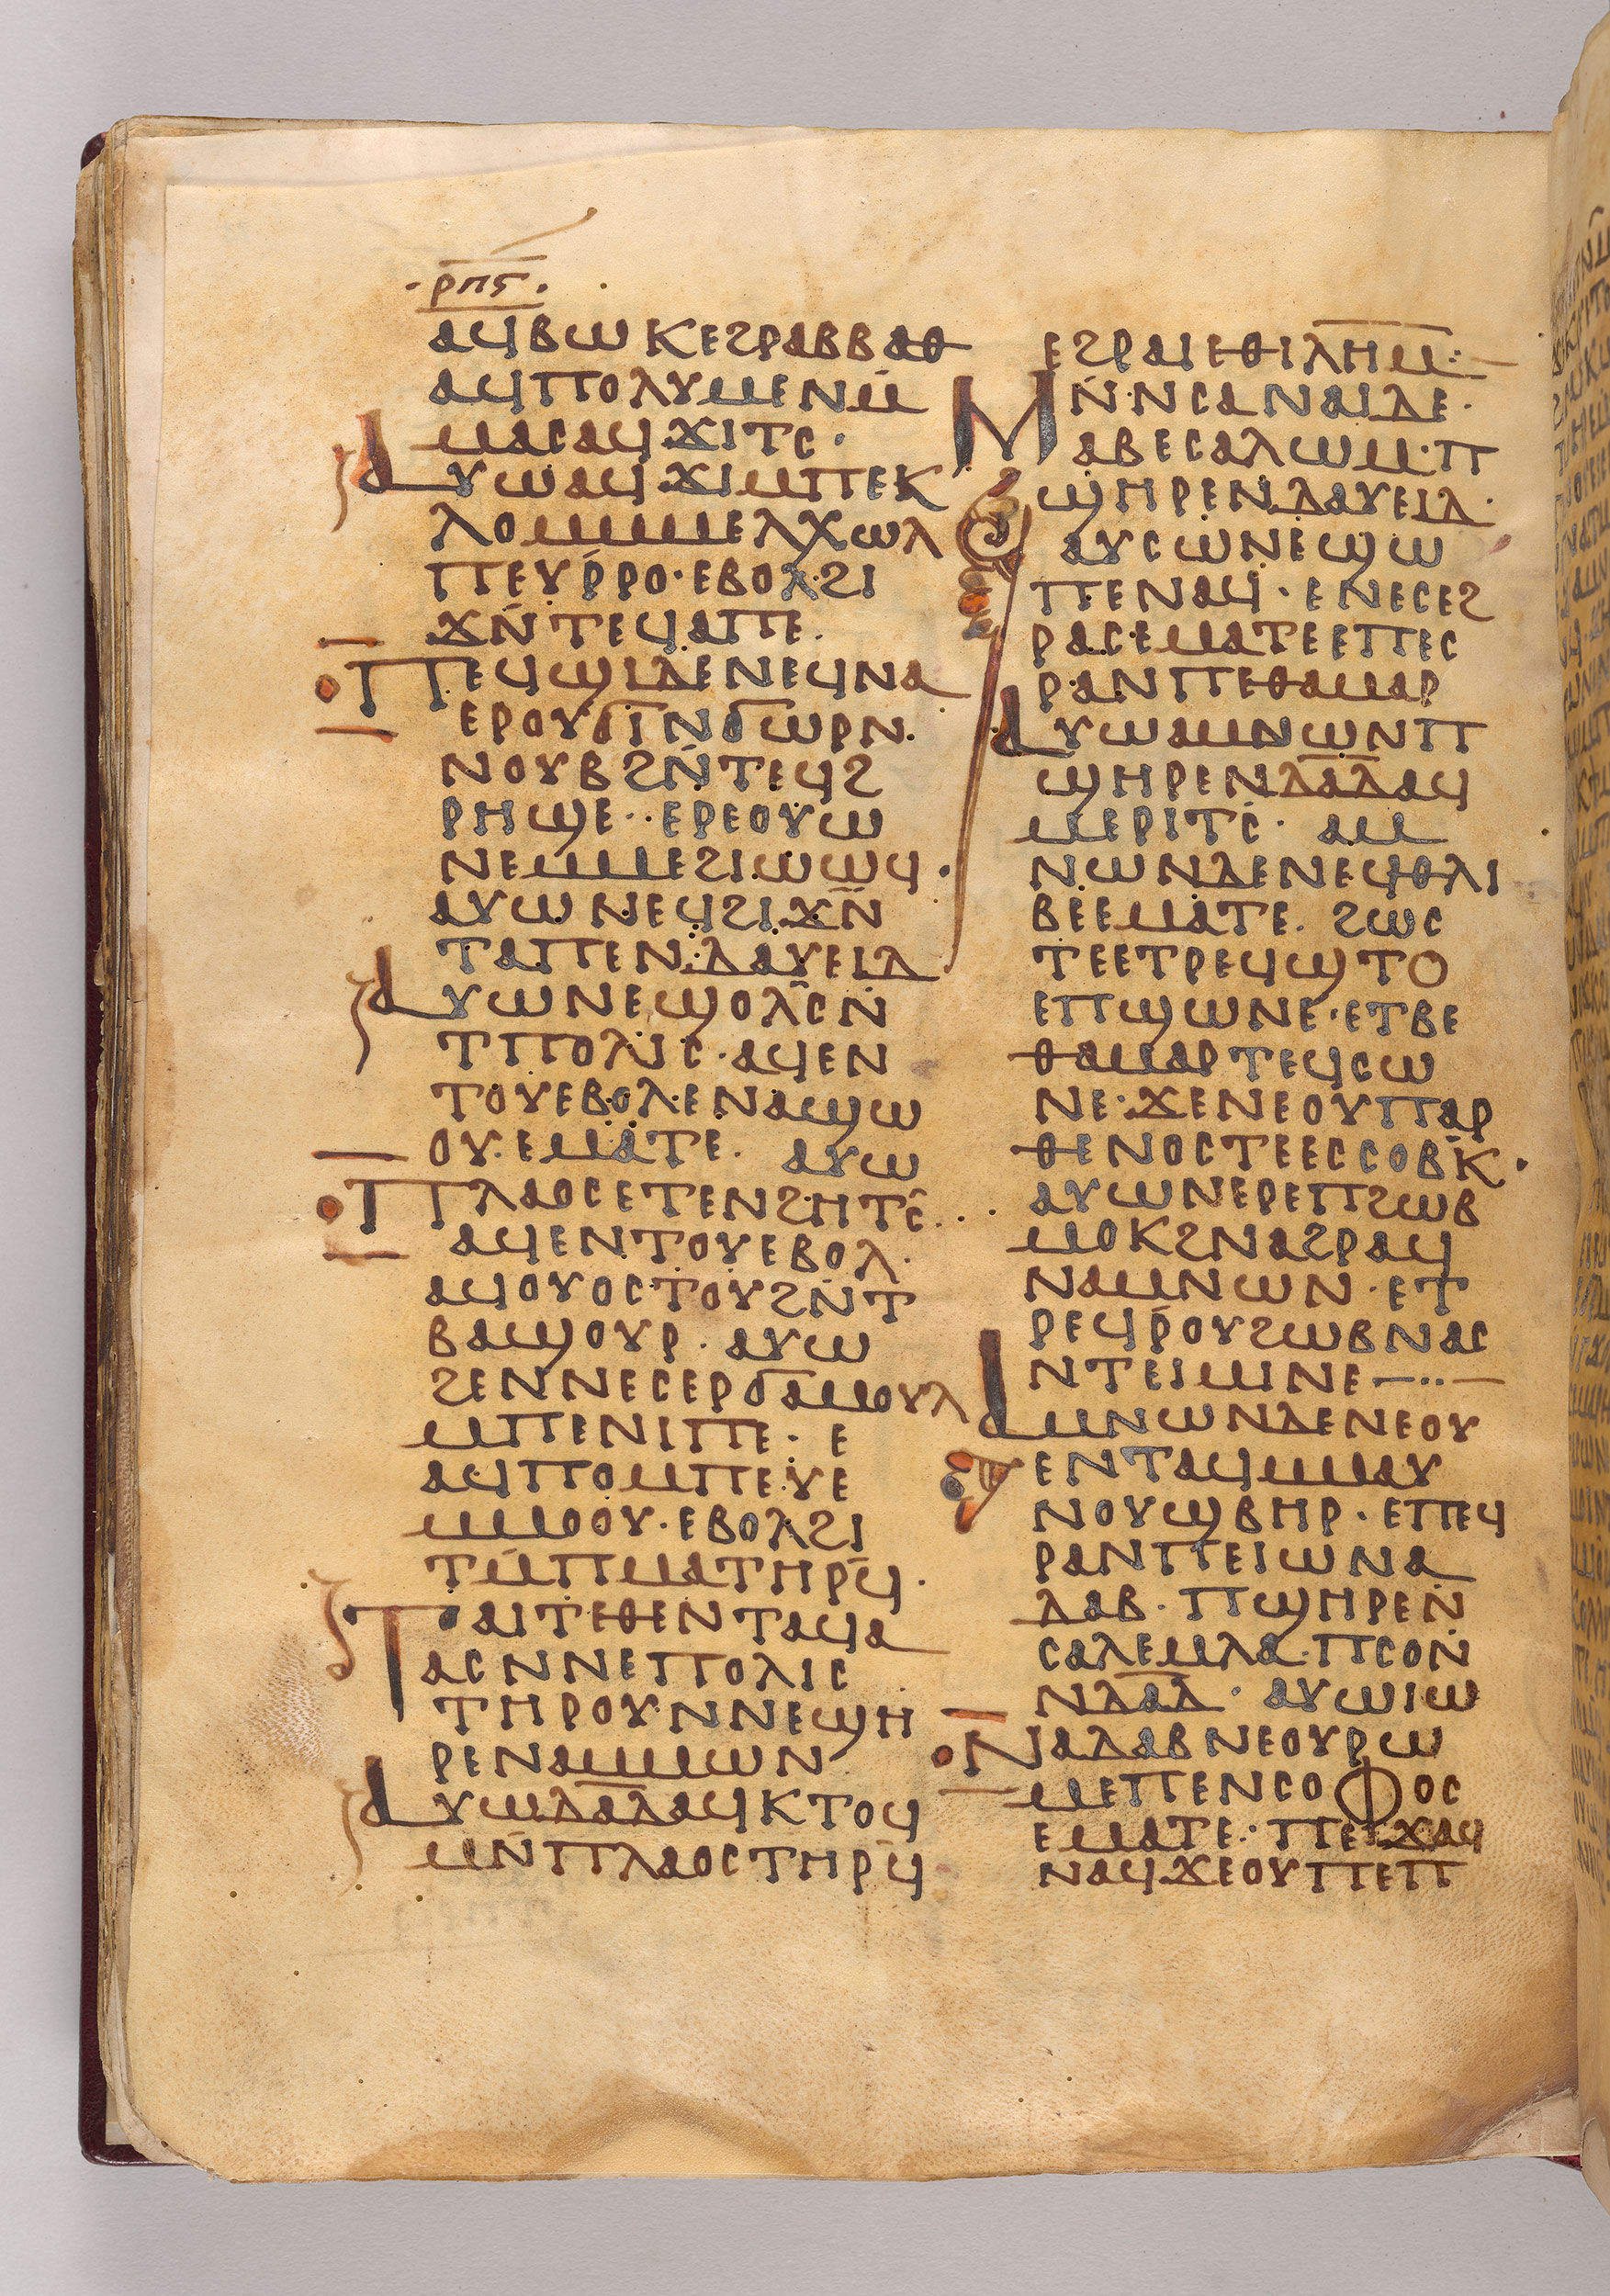 ⲣⲡⲋ
ⲁϥⲃⲱⲕⲉϩⲣⲁⲃⲃⲁⲑ
ⲁϥⲡⲟⲗⲩⲙⲉⲛⲙ̄
ⲙⲁⲥⲁϥϫⲓⲧⲥ·
ⲁⲩⲱⲁϥϫⲓⲙⲡⲉⲕ
ⲗⲟⲙⲙⲙⲉⲗⲭⲱⲗ
ⲡⲉⲩⲣ̄ⲣⲟ·ⲉⲃⲟⲗϩⲓ
ϫⲛ̄ⲧⲉϥⲁⲡⲉ·
ⲡⲉϥϣⲓⲇⲉⲛⲉϥⲛⲁ
ⲉⲣⲟⲩϭⲓⲛϭⲱⲣⲛ·
ⲛⲟⲩⲃϩⲛ̄ⲧⲉϥϩ
ⲣⲏϣⲉ··ⲉⲣⲉⲟⲩⲱ
ⲛⲉⲙⲙⲉϩⲓⲱⲱϥ·
ⲁⲩⲱⲛⲉϥϩⲓϫⲛ̄
ⲧⲁⲡⲉⲛⲇⲁⲩⲉⲓⲇ
ⲁⲩⲱⲛⲉϣⲟⲗⲥ̄ⲛ
ⲧⲡⲟⲗⲓⲥ·ⲁϥⲉⲛ
ⲧⲟⲩⲉⲃⲟⲗ·ⲉⲛⲁϣⲱ
ⲟⲩ·ⲉⲙⲁⲧⲉ· ⲁⲩⲱ
ⲡⲗⲁⲟⲥⲉⲧⲉⲛϩⲏⲧⲥ̄·
ⲁϥⲉⲛⲧⲟⲩⲉⲃⲟⲗ·
ⲁϥⲟⲩⲟⲥⲧⲟⲩϩⲛⲧ
ⲃⲁϣⲟⲩⲣ·ⲁⲩⲱ
ϩⲉⲛⲛⲉⲥⲉⲣϭⲁⲙⲟⲩⲗ
ⲙⲡⲉⲛⲓⲡⲉ· ⲉ
ⲁϥⲡⲟⲙⲡⲉⲩⲉ
ⲙⲙⲟⲟⲩ·ⲉⲃⲟⲗϩⲓ
ⲧⲙ̄ⲡⲙⲁⲧⲏⲣϥ̄·
ⲧⲁⲓⲧⲉⲑⲉⲛⲧⲁϥⲁ
ⲁⲥⲛⲛⲉⲡⲟⲗⲓⲥ
ⲧⲏⲣⲟⲩ·ⲛⲛⲉϣⲏ
ⲣⲉⲛⲁⲙⲙⲱⲛ
ⲁⲩⲱⲇⲁ̅ⲇⲁϥⲕⲧⲟϥ
ⲙⲛ̄ⲡⲗⲁⲟⲥⲧⲏⲣϥ̄
ⲉϩⲣⲁⲓⲉⲑⲓⲗⲏ̅ⲙ̅:
ⲙⲛ̄·ⲛⲥⲁⲛⲁⲓⲇⲉ·
ⲁⲃⲉⲥⲁⲗⲱⲙ·ⲡ
ϣⲏⲣⲉⲛⲇⲁⲩⲉⲓⲇ·
ⲁⲩⲥⲱⲛⲉϣⲱ
ⲡⲉⲛⲁϥ·ⲉⲛⲉⲥⲉϩ
ⲣⲁⲥⲉⲙⲁⲧⲉⲉⲡⲉⲥ
ⲣⲁⲛⲡⲉⲑⲁⲙⲁⲣ
ⲁⲩⲱⲁⲙⲛⲱⲛⲡ
ϣⲏⲣⲉⲛⲇⲁ̅ⲇⲁϥ
ⲙⲉⲣⲓⲧⲥ· ⲁⲙ
ⲛⲱⲛⲇⲉⲛⲉϥⲑⲗⲓ
ⲃⲉⲉⲙⲁⲧⲉ· ϩⲱⲥ
ⲧⲉⲉⲧⲣⲉϥϣⲧⲟ
ⲉⲡϣⲱⲛⲉ·ⲉⲧⲃⲉ
ⲑⲁⲙⲁⲣⲧⲉϥⲥⲱ
ⲛⲉ·ϫⲉⲛⲉⲟⲩⲡⲁⲣ
ⲑⲉⲛⲟⲥⲧⲉⲉⲥⲥⲟⲃⲕ̄·
ⲁⲩⲱⲛⲉⲣⲉⲡϩⲱⲃ
ⲙⲟⲕϩⲛⲁϩⲣⲁϥ
ⲛⲁⲙⲛⲱⲛ·ⲉⲧ
ⲣⲉϥⲣ̄ⲟⲩϩⲱⲃⲛⲁⲥ
ⲛⲧⲉⲓⲙⲓⲛⲉ—··—
ⲁⲙⲛⲱⲛⲇⲉⲛⲉⲟⲩ
ⲉⲛⲧⲁϥⲙⲙⲁⲩ
ⲛⲟⲩϣⲃⲏⲣ·ⲉⲡⲉϥ
ⲣⲁⲛⲡⲉⲓⲱⲛⲁ
ⲇⲁⲃ·ⲡϣⲏⲣⲉⲛ
ⲥⲁⲗⲉⲙⲗⲁ·ⲡⲥⲟⲛ
ⲛⲇⲁ̅ⲇ· ⲁⲩⲱⲓⲱ
ⲛⲁⲇⲁⲃⲛⲉⲟⲩⲣⲱ
ⲙⲉⲡⲉⲛⲥⲟⲫⲟⲥ
ⲉⲙⲁⲧⲉ·ⲡⲉϫⲁϥ
ⲛⲁϥϫⲉⲟⲩⲡⲉⲡ